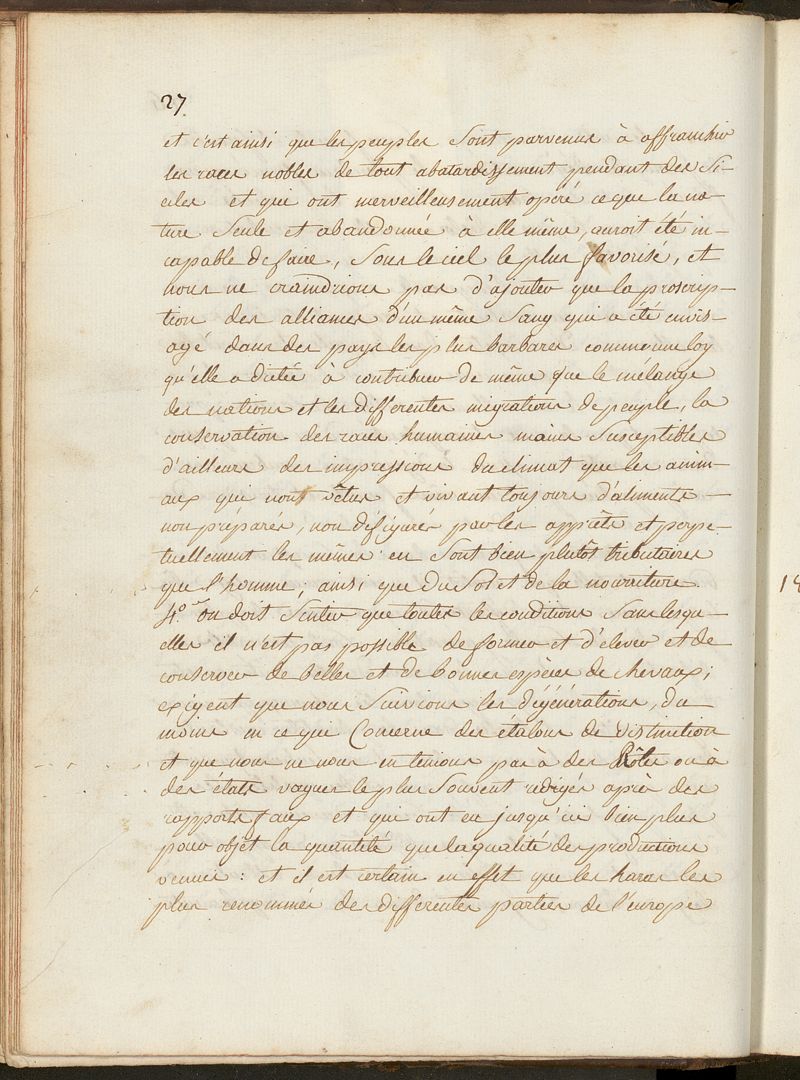 27.
et c'est ainsi que les peuples sont parvenus à affranchir
les races nobles de tout abatardissement pendant des Si-
ecles et qui ont merveilleusement opéré ce que la na-
ture seule et abandonnée à elle même, auroit été in-
capable de faire, sous le ciel le plus favorisé, et
nous ne craindrions pas d'ajouter que la proscrip-
tion des alliances d'un même Sang qui a été envis-
agé dans des pays les plus barbares comme une loy
qu'elle a dictée à contribuer de même que le mélange
des nations et les differentes migrations de peuple, la
conservation des races humaines moins Susceptibles
d'ailleurs des impressions du climat que les anim-
aux qui nont vêtus et vivant toujours d'aliments -
non préparés, non défigurés par les apprêts et perpe-
tuellement les mêmes en sont bien plutôt tributaires
que l'homme; ainsi que du Sol et de la nourriture.
4.° on doit Sentir que toutes les conditions Sans lesqu-
elles il n'est pas possible de former et d'elever et de
conserver de belles et de bonnes espèces de chevaux;
exigent que nous Suivions les dégénérations, du
moins en ce qui Concerne des étalons de distinction
et que nous ne nous en tenions pas à des Rôles ou à
des états vagues le plus Souvent redigés après des
rapports faux et qui ont eu jusqu'ici bien plus
pour objet la quantité que la qualité des productions
venues: et il est certain en effet que les haras les
plus renommés des differentes parties de l'europe